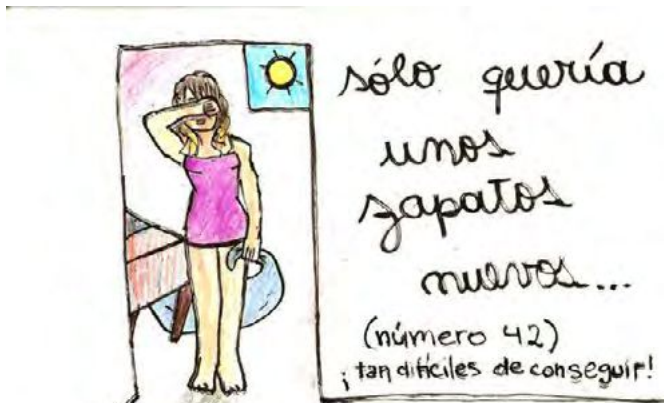 sólo quería
unos
zapatos
nuevos...
(número 42)
¡tan difíciles de conseguir!